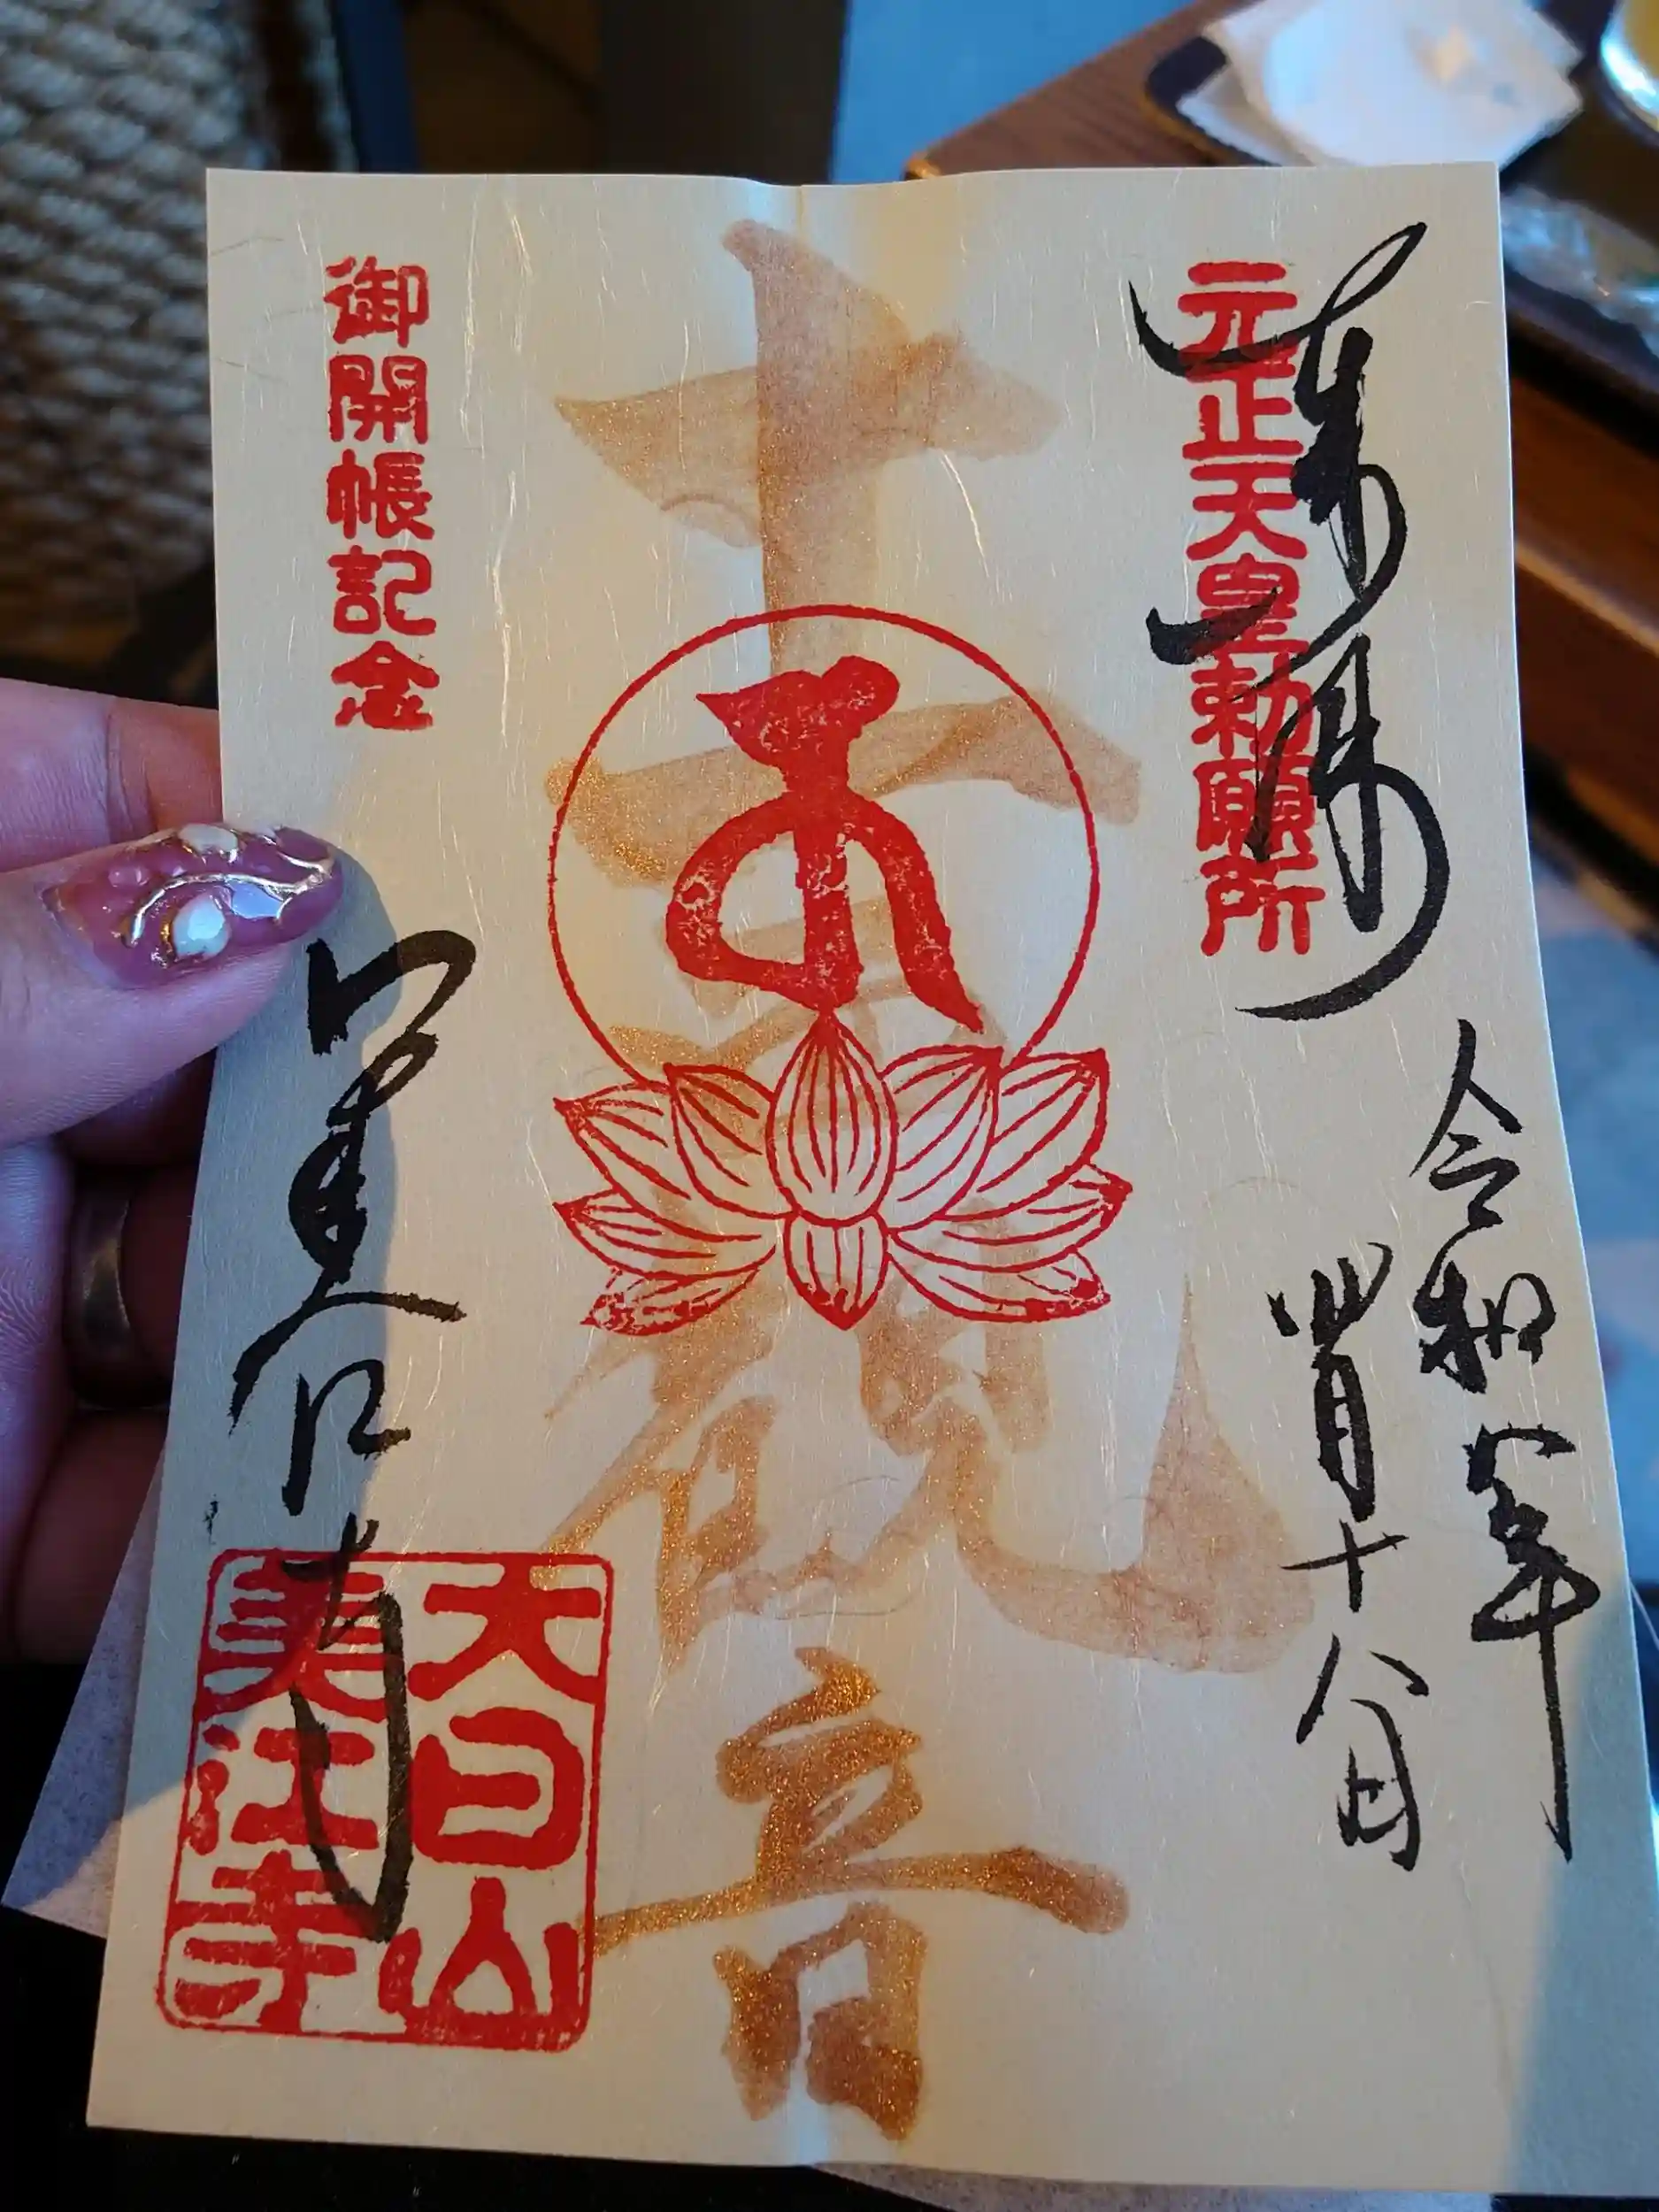 奉拝
元正天皇勅願所
令和年
四月十八日
十一面觀音
御開帳記念
美江寺
大日山
美江寺